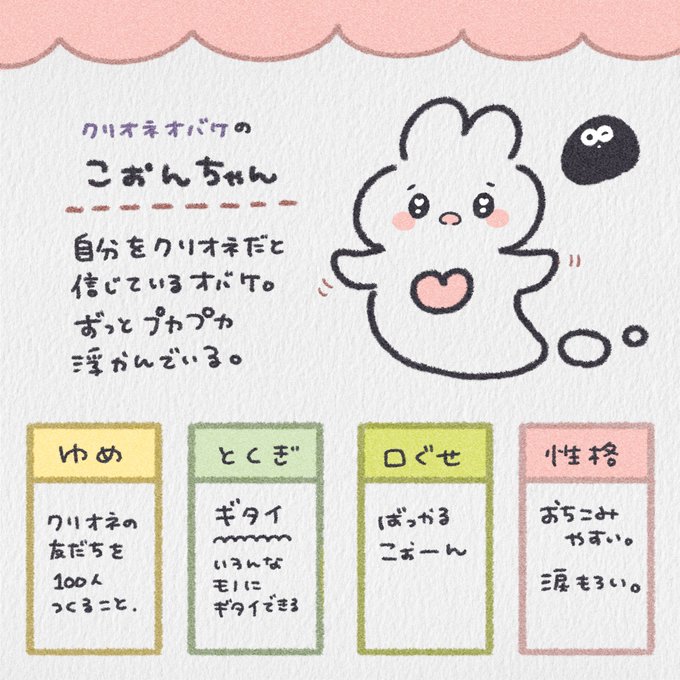 クリオネオバケの
こぉんちゃん
自分をクリオネだと
信じているオバケ。
ずっとプカプカ
浮かんでいる。
ゆめ
クリオネの
友だちを
100人
つくること.
とくぎ
ギタイ
いろんな
モノに
ギタイできる
口ぐせ
ばっかる
こぉーん
性格
おちこみ
やすい。
涙もろい。